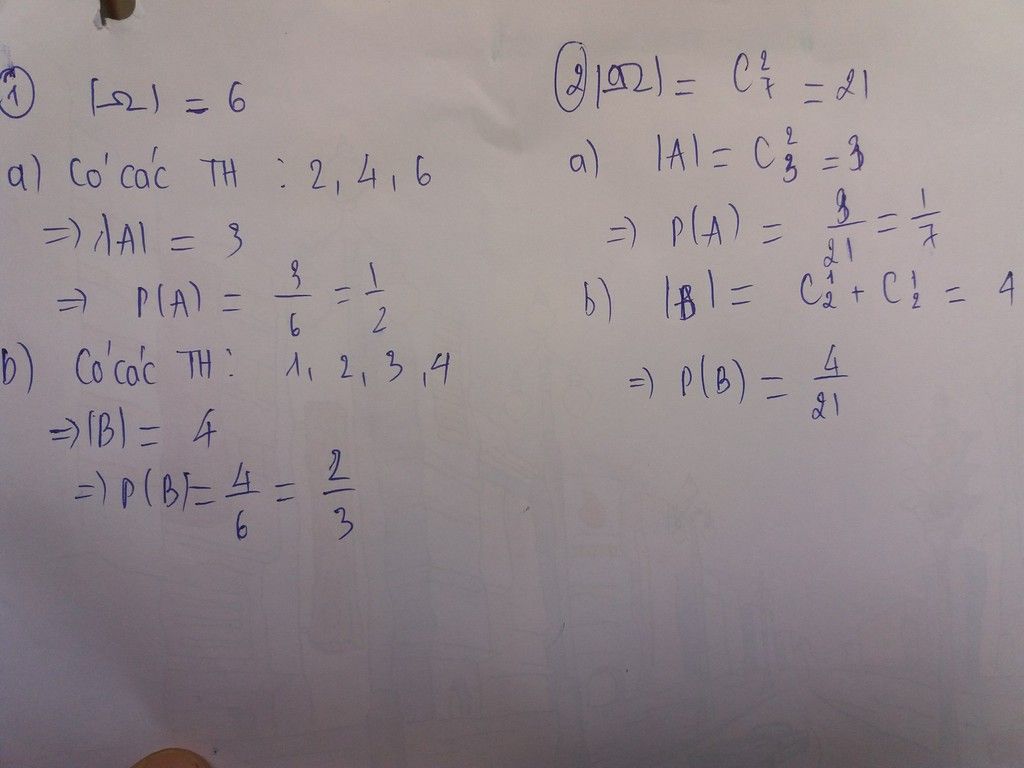 ① |Ω| = 6
a) Có các TH : 2, 4, 6
=> |A| = 3
=> P(A) = 3/6 = 1/2
b) Có các TH : 1, 2, 3, 4
=> |B| = 4
=> P(B) = 4/6 = 2/3
② |Ω| = C²₇ = 21
a) |A| = C²₃ = 3
=> P(A) = 3/21 = 1/7
b) |B| = C¹₂ + C¹₂ = 4
=> P(B) = 4/21